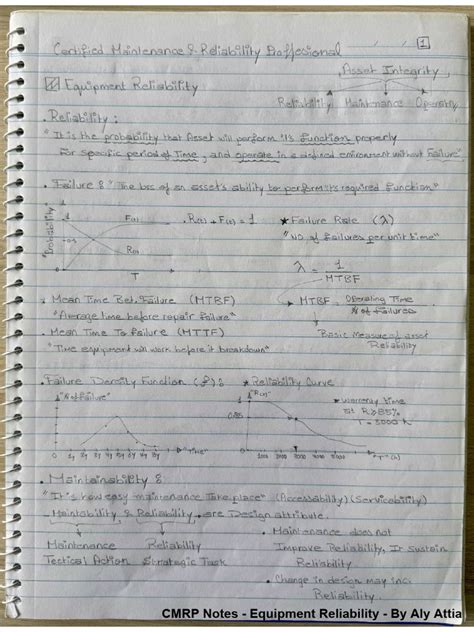 Certified Maintenance & Reliability Proffesional
1
Asset Integrity
Equipment Reliability
Reliability Maintenance Operation
. Reliability :
"It is the probability that Asset will perform it's function properly
For specific period of Time, and operate in a defined environment without Failure"
. Failure : "The loss of an asset's ability to perform its required function"
Probability
1
F(t)
. R(t) + F(t) = 1
★ Failure Rate (λ)
0.5
"No of failures per unit time"
R(t)
T
λ = 1
MTBF
* Mean Time Bet. Failure (MTBF)
MTBF = Operating Time
# of Failures
"Average time before repair failure"
. Mean Time To failure (MTTF)
Basic Measure of asset
Reliability
"Time equipment will work before it breakdown"
. Failure Density Function (f) :
★ Reliability Curve
"N of Failure"
"R(t)"
* Warrenty time
at R≥85%
T = 3000 h
1
0.85
"Time"
1000 2000 3000 4000 5000
"T" (h)
. Maintainability :
"It's how easy maintenance Take place" (Accessability) (Servicability)
- Maintability & Reliability, are Design attribute.
Maintenance Reliability
Tectical Action Strategic Task
. Maintenance does not
Improve Reliability, It sustain
Reliability
. Change in design may inc.
Reliability
CMRP Notes - Equipment Reliability - By Aly Attia